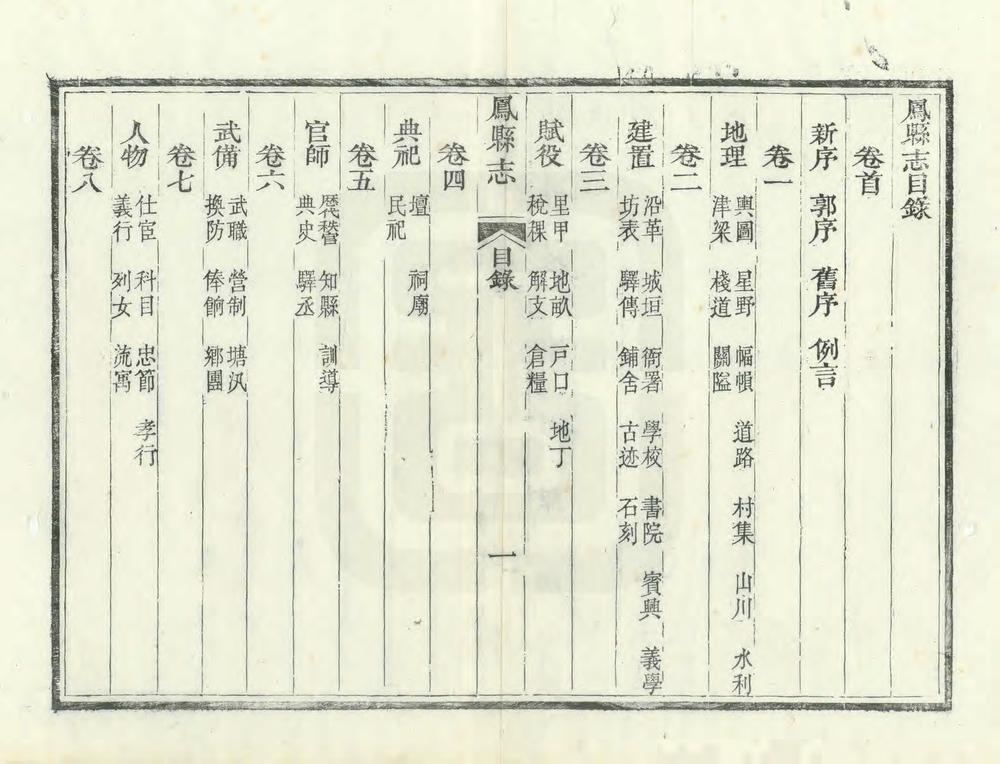 鳳縣志目錄
卷首
新序 郭序 舊序 例言
卷一
地理 輿圖 星野 幅幀 道路 村集 山川 水利
津梁 棧道 關隘
卷二
建置 沿革 城垣 衙署 學校 書院 賓興 義學
坊表 驛傳 鋪舍 古迹 石刻
卷三
賦役 里甲 地畝 戸口 地丁
稅課 解支 倉糧
鳳縣志 目錄 一
卷四
典祀 壇 祠廟
民祀
卷五
官師 知縣 訓導
典史 驛丞
卷六
武備 武職 營制 塘汛
換防 俸餉 鄉團
卷七
人物 仕宦 科目 忠節 孝行
義行 列女 流寓
卷八